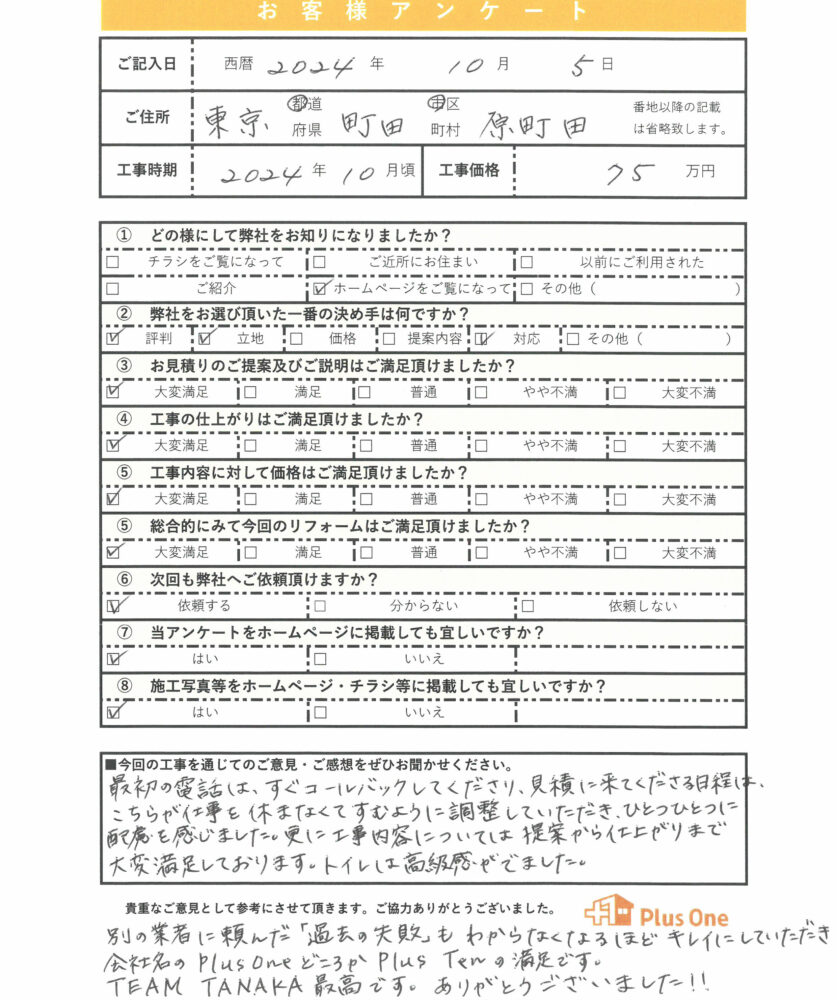 お客様アンケート
ご記入日 西暦 2024 年 10 月 5 日
ご住所 東京 都道府県 町田 市区町村 原町田 番地以降の記載は省略致します。
工事時期 2024 年 10 月頃 工事価格 75 万円
① どの様にして弊社をお知りになりましたか？
□ チラシをご覧になって □ ご近所にお住まい □ 以前にご利用された
□ ご紹介 ☑ ホームページをご覧になって □ その他（ ）
② 弊社をお選び頂いた一番の決め手は何ですか？
☑ 評判 ☑ 立地 □ 価格 □ 提案内容 ☑ 対応 □ その他（ ）
③ お見積りのご提案及びご説明はご満足頂けましたか？
☑ 大変満足 □ 満足 □ 普通 □ やや不満 □ 大変不満
④ 工事の仕上がりはご満足頂けましたか？
☑ 大変満足 □ 満足 □ 普通 □ やや不満 □ 大変不満
⑤ 工事内容に対して価格はご満足頂けましたか？
☑ 大変満足 □ 満足 □ 普通 □ やや不満 □ 大変不満
⑤ 総合的にみて今回のリフォームはご満足頂けましたか？
☑ 大変満足 □ 満足 □ 普通 □ やや不満 □ 大変不満
⑥ 次回も弊社へご依頼頂けますか？
☑ 依頼する □ 分からない □ 依頼しない
⑦ 当アンケートをホームページに掲載しても宜しいですか？
☑ はい □ いいえ
⑧ 施工写真等をホームページ・チラシ等に掲載しても宜しいですか？
☑ はい □ いいえ
■今回の工事を通じてのご意見・ご感想をぜひお聞かせください。
最初の電話は、すぐコールバックしてくださり、見積に来てくださる日程は、
こちらが仕事を休まなくてすむように調整していただき、ひとつひとつに
配慮を感じました。更に工事内容については提案から仕上がりまで
大変満足しております。トイレは高級感がでました。
貴重なご意見として参考にさせて頂きます。ご協力ありがとうございました。
Plus One
別の業者に頼んだ「過去の失敗」もわからなくなるほどキレイにしていただき
会社名のPlus OneどころかPlus Tenの満足です。
TEAM TANAKA最高です。ありがとうございました!!